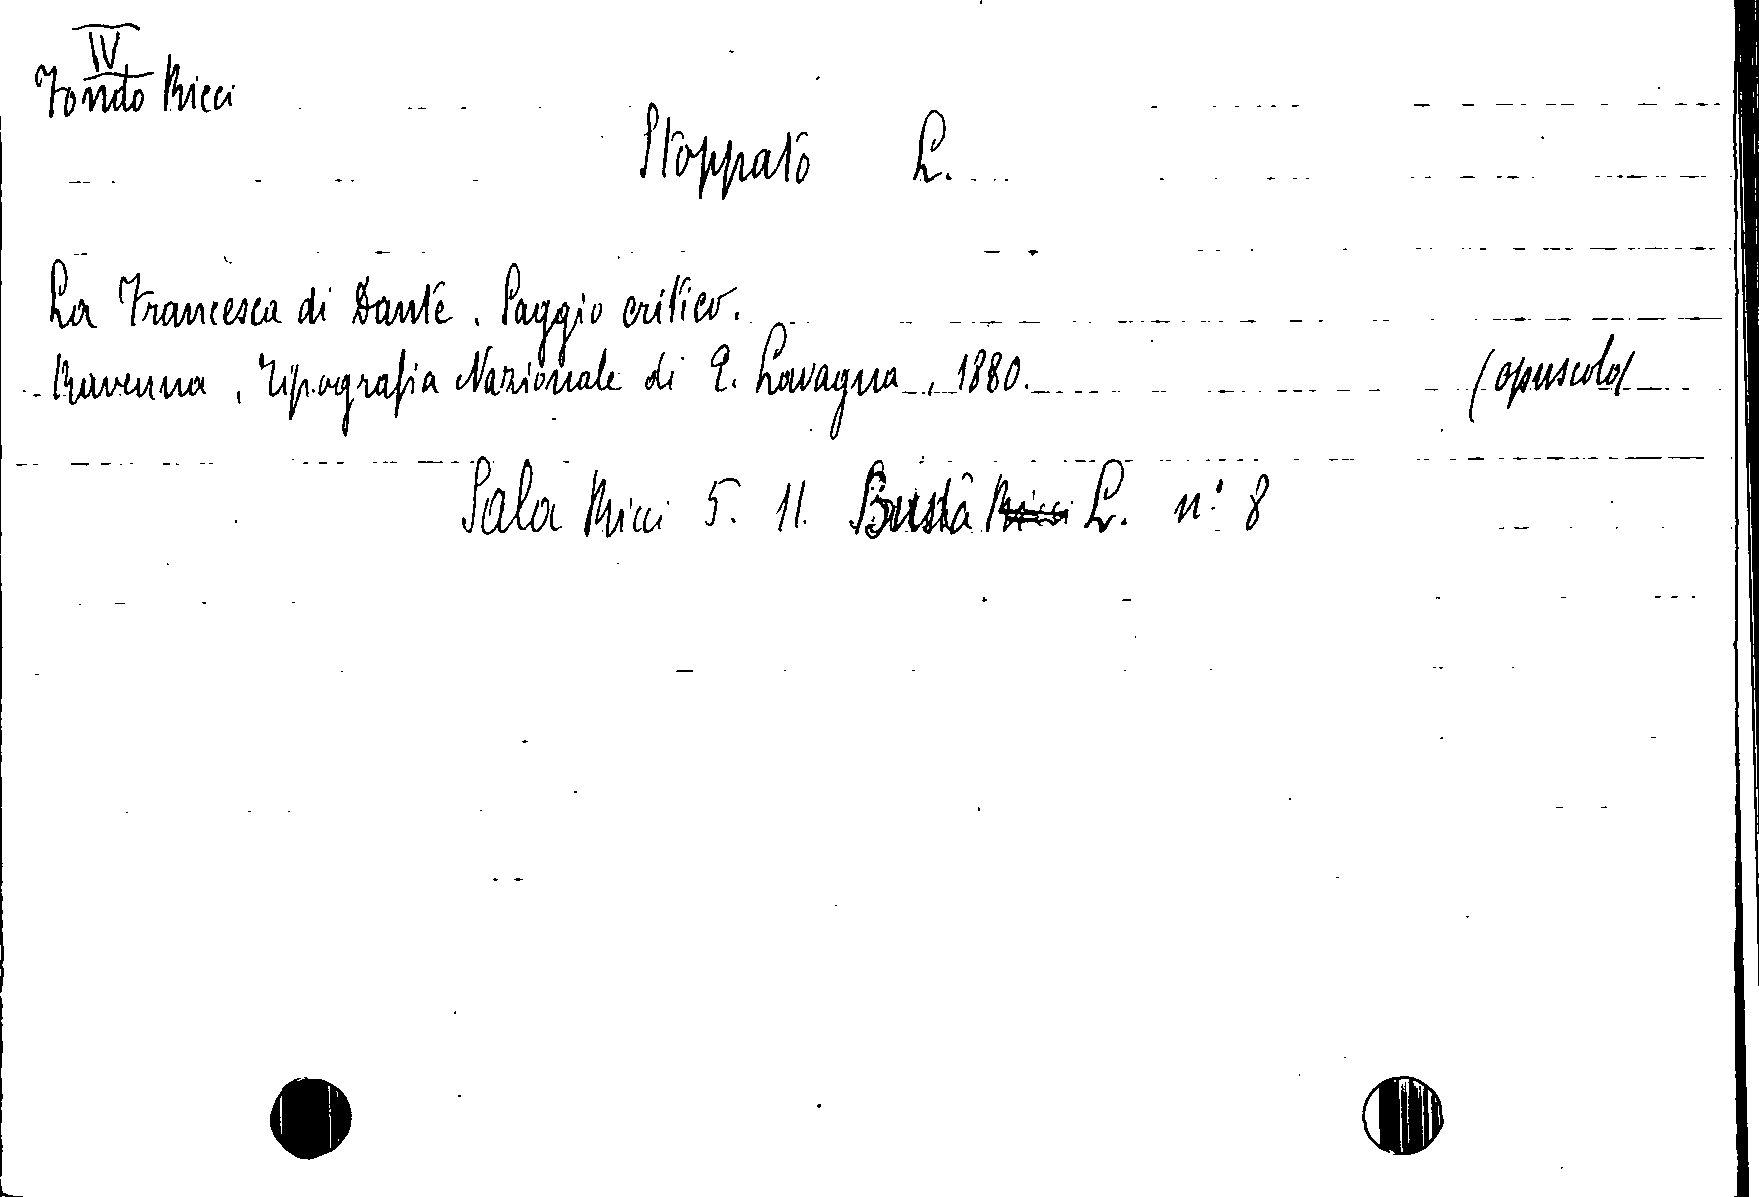 IV
Fondo Ricci
Stoppato L.
La Francesca di Dante. Saggio critico.
Ravenna, Tipografia Nazionale di E. Lavagna, 1880. (opuscolo)
Sala Ricci 5. 11. Busta Ricci L. n: 8